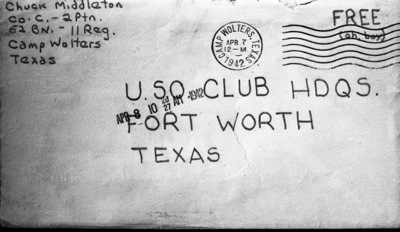 Chuck Middleton
Co. C. - 2 Ptn.
52 BN. - 11 Reg.
Camp Wolters
Texas
CAMP WOLTERS, TEXAS
APR 7
12-M
1942
FREE
(ah, boy)
U.S.O. CLUB HDQS.
APR 8 10 27 AM 1942
FORT WORTH
TEXAS